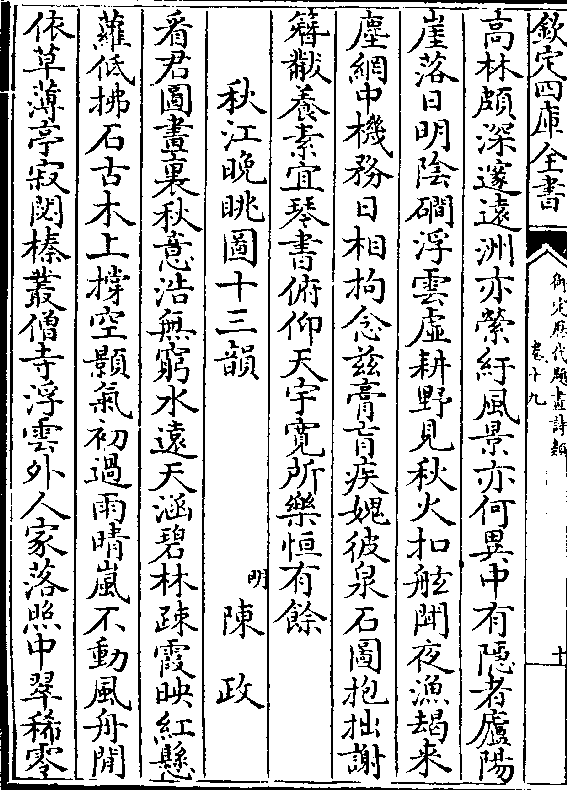 欽定四庫全書
御定歷代題畫詩類
卷十九
十
高林頗深邃遠洲亦縈紆風景亦何異中有隱者廬陽
崖落日明陰磵浮雲虛耕野見秋火扣舷聞夜漁朅来
塵網中機務日相拘念兹膏肓疾媿彼泉石圖抱拙謝
簪黻養素宜琴書俯仰天宇寛所樂恒有餘
秋江晚眺圖十三韻
明陳政
看君圖畫裏秋意浩無窮水遠天涵碧林疎霞映紅懸
蘿低拂石古木上撐空顥氣初過雨晴嵐不動風舟閒
依草薄亭寂閟榛叢僧寺浮雲外人家落照中翠稀零